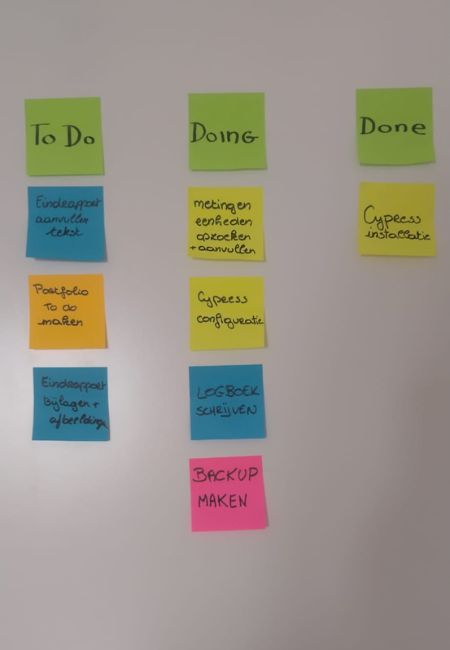 To Do
Eindrapport
aanvullen
tekst
Portfolio
To do
maken
Eindrapport
bijlagen +
afbeeldingen
Doing
metingen
eenheden
opzoeken
+ aanvullen
Cypress
configuratie
LOGBOEK
SCHRIJVEN
BACKUP
MAKEN
Done
Cypress
installatie